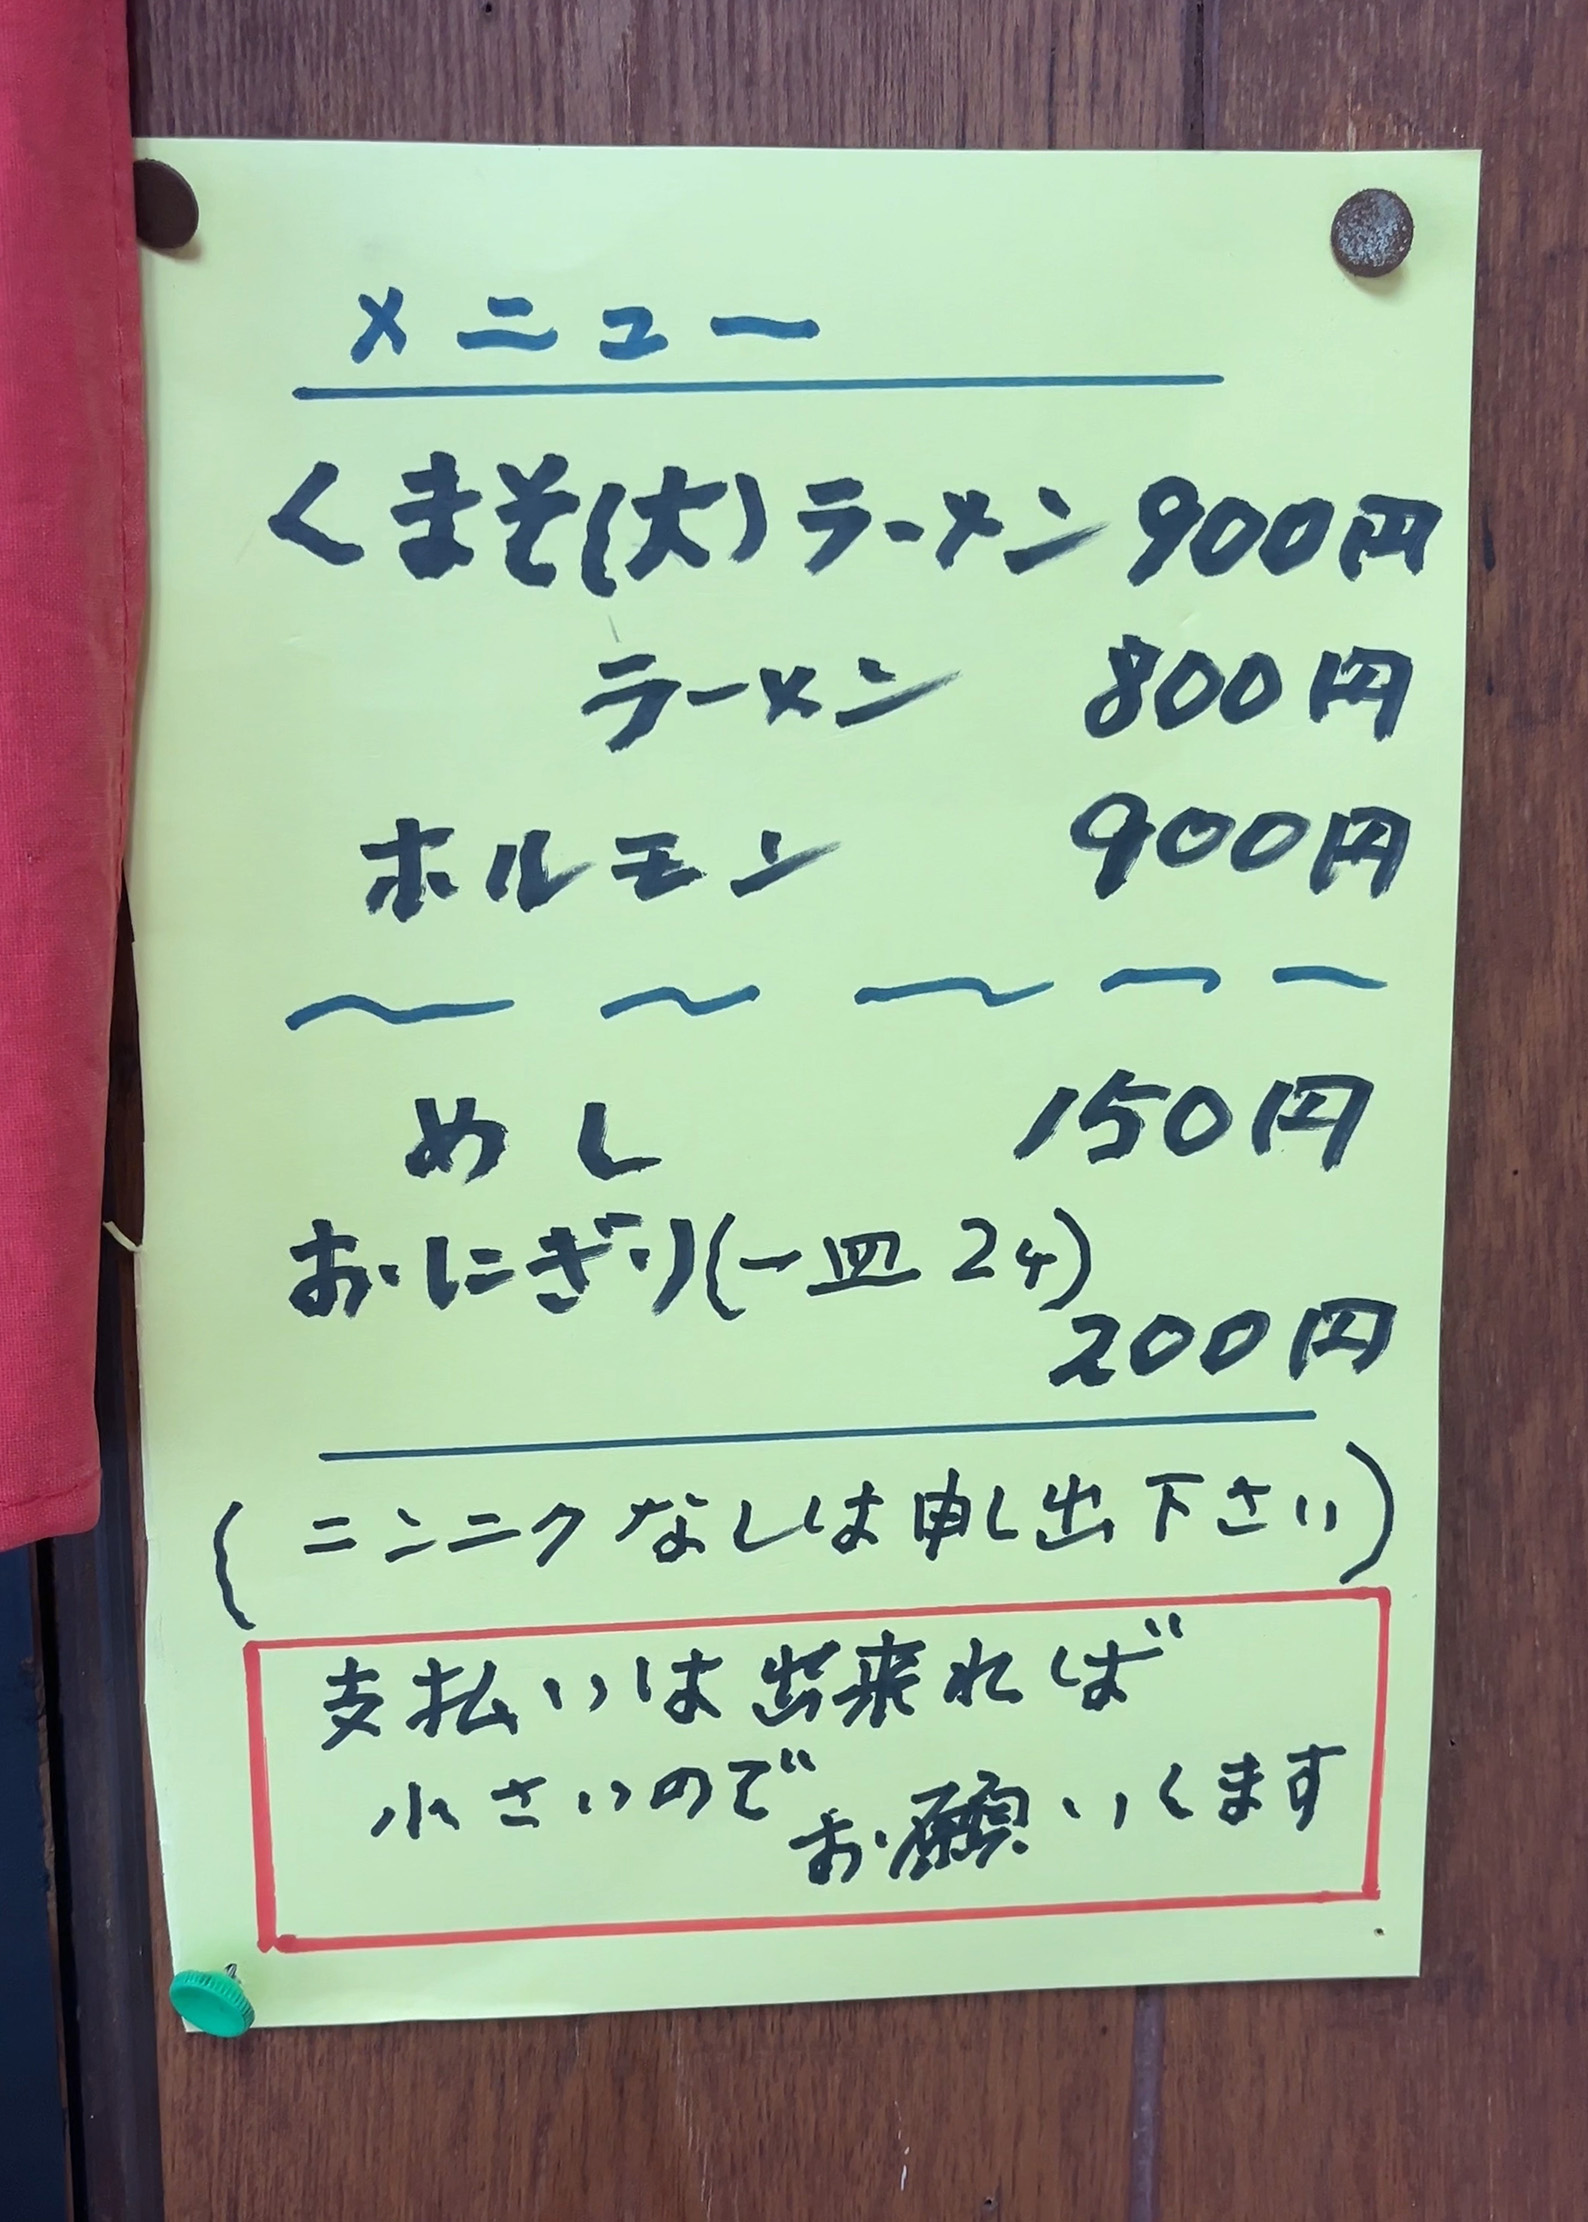 メニュー
くまそ(大)ラーメン 900円
ラーメン 800円
ホルモン 900円
めし 150円
おにぎり(一皿2ケ)
200円
(ニンニクなしは申し出下さい)
支払いは出来れば
小さいので
お願いします